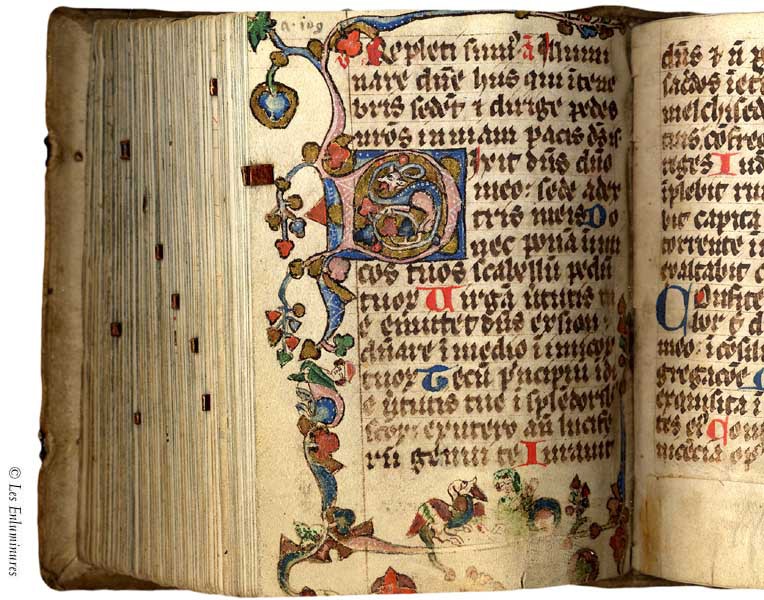 Repleti sunt ā Illumi
nare dñe hiis qui ītene
bris sedēt ⁊ dirige pedes
nr̄os in viam pacis
Dixit dn̄s dn̄o
meo: sede a dex
tris meis Do
nec ponā inimi
cos tuos scabellū pedū
tuor Virgā v̄tutis tu
e emittet dn̄s ex sion:
dn̄are ī medio inimicor
tuor Tecū p̄ncipiū ī di
e v̄tutis tue ī splēdorib
scōr: ex utero an̄ lucife
rū genui te Iurauit
dn̄s ⁊ n̄ p
sac̄dos ī et
melchised
tuis cōfreg
reges Iud
īplebit rui
bit capita
torrente i
exaltabit c
Confite
meo: ī cōsili
gregacōe
exquisita i
tes ei Con
© Les Enluminures